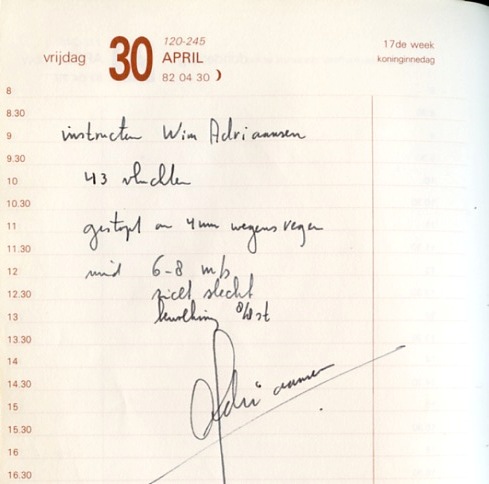 120-245
vrijdag 30 APRIL
82 04 30
17de week
koninginnedag
8
8.30
9 instructeur Wim Adriaansen
9.30
10 43 vluchten
10.30
11 gestopt om 4 uur wegens regen
11.30
12 wind 6-8 m/s
12.30 zicht slecht
13 bewolking 8/8 st
13.30
14
14.30 Adriaansen
15
15.30
16
16.30